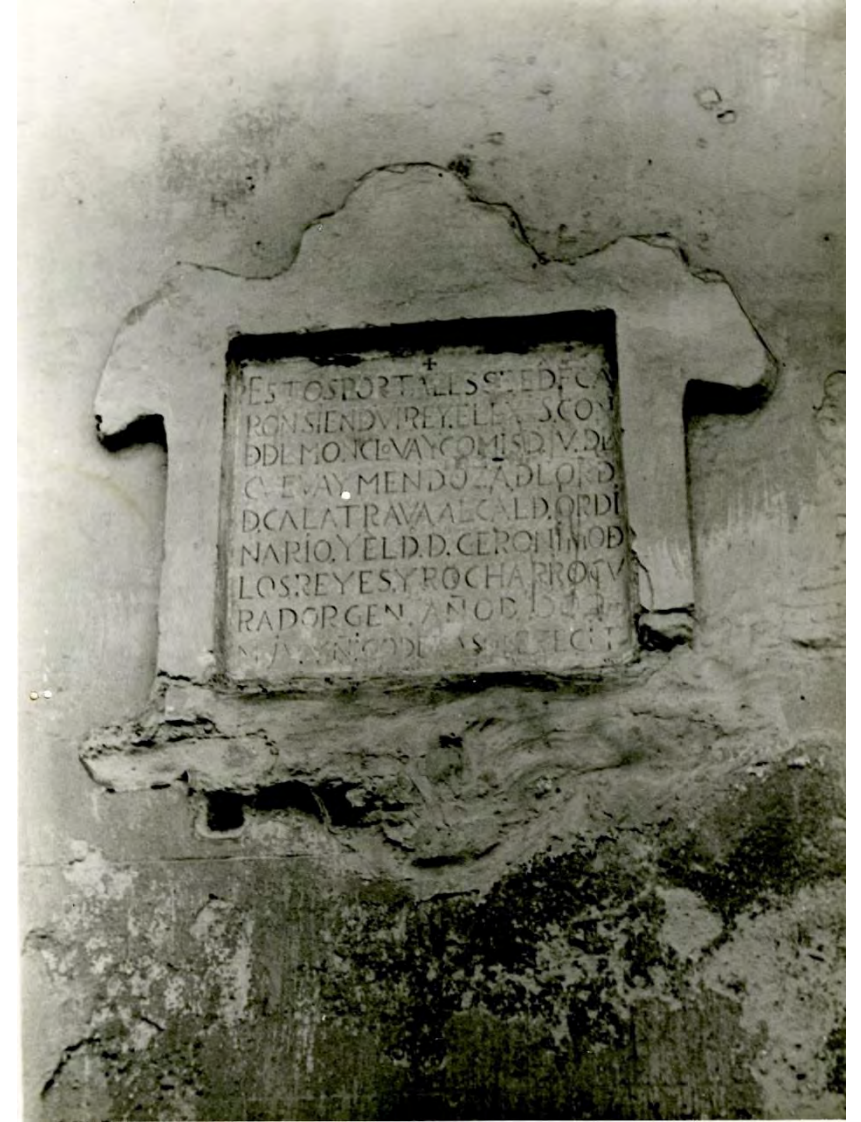 +
ESTOS PORTALES SE EDEFCA
RON SIENDV IREY. EL EX S. CON
D DE MONCLOVA Y COMIS D. JV. DE
CVEVA Y MENDOZA D L ORD.
D. CALATRAVA ALCALD. ORDI
NARIO. Y EL D. D. GERONIMO D
LOS REYES. Y ROCHA PROCV
RADOR GEN. AÑO D